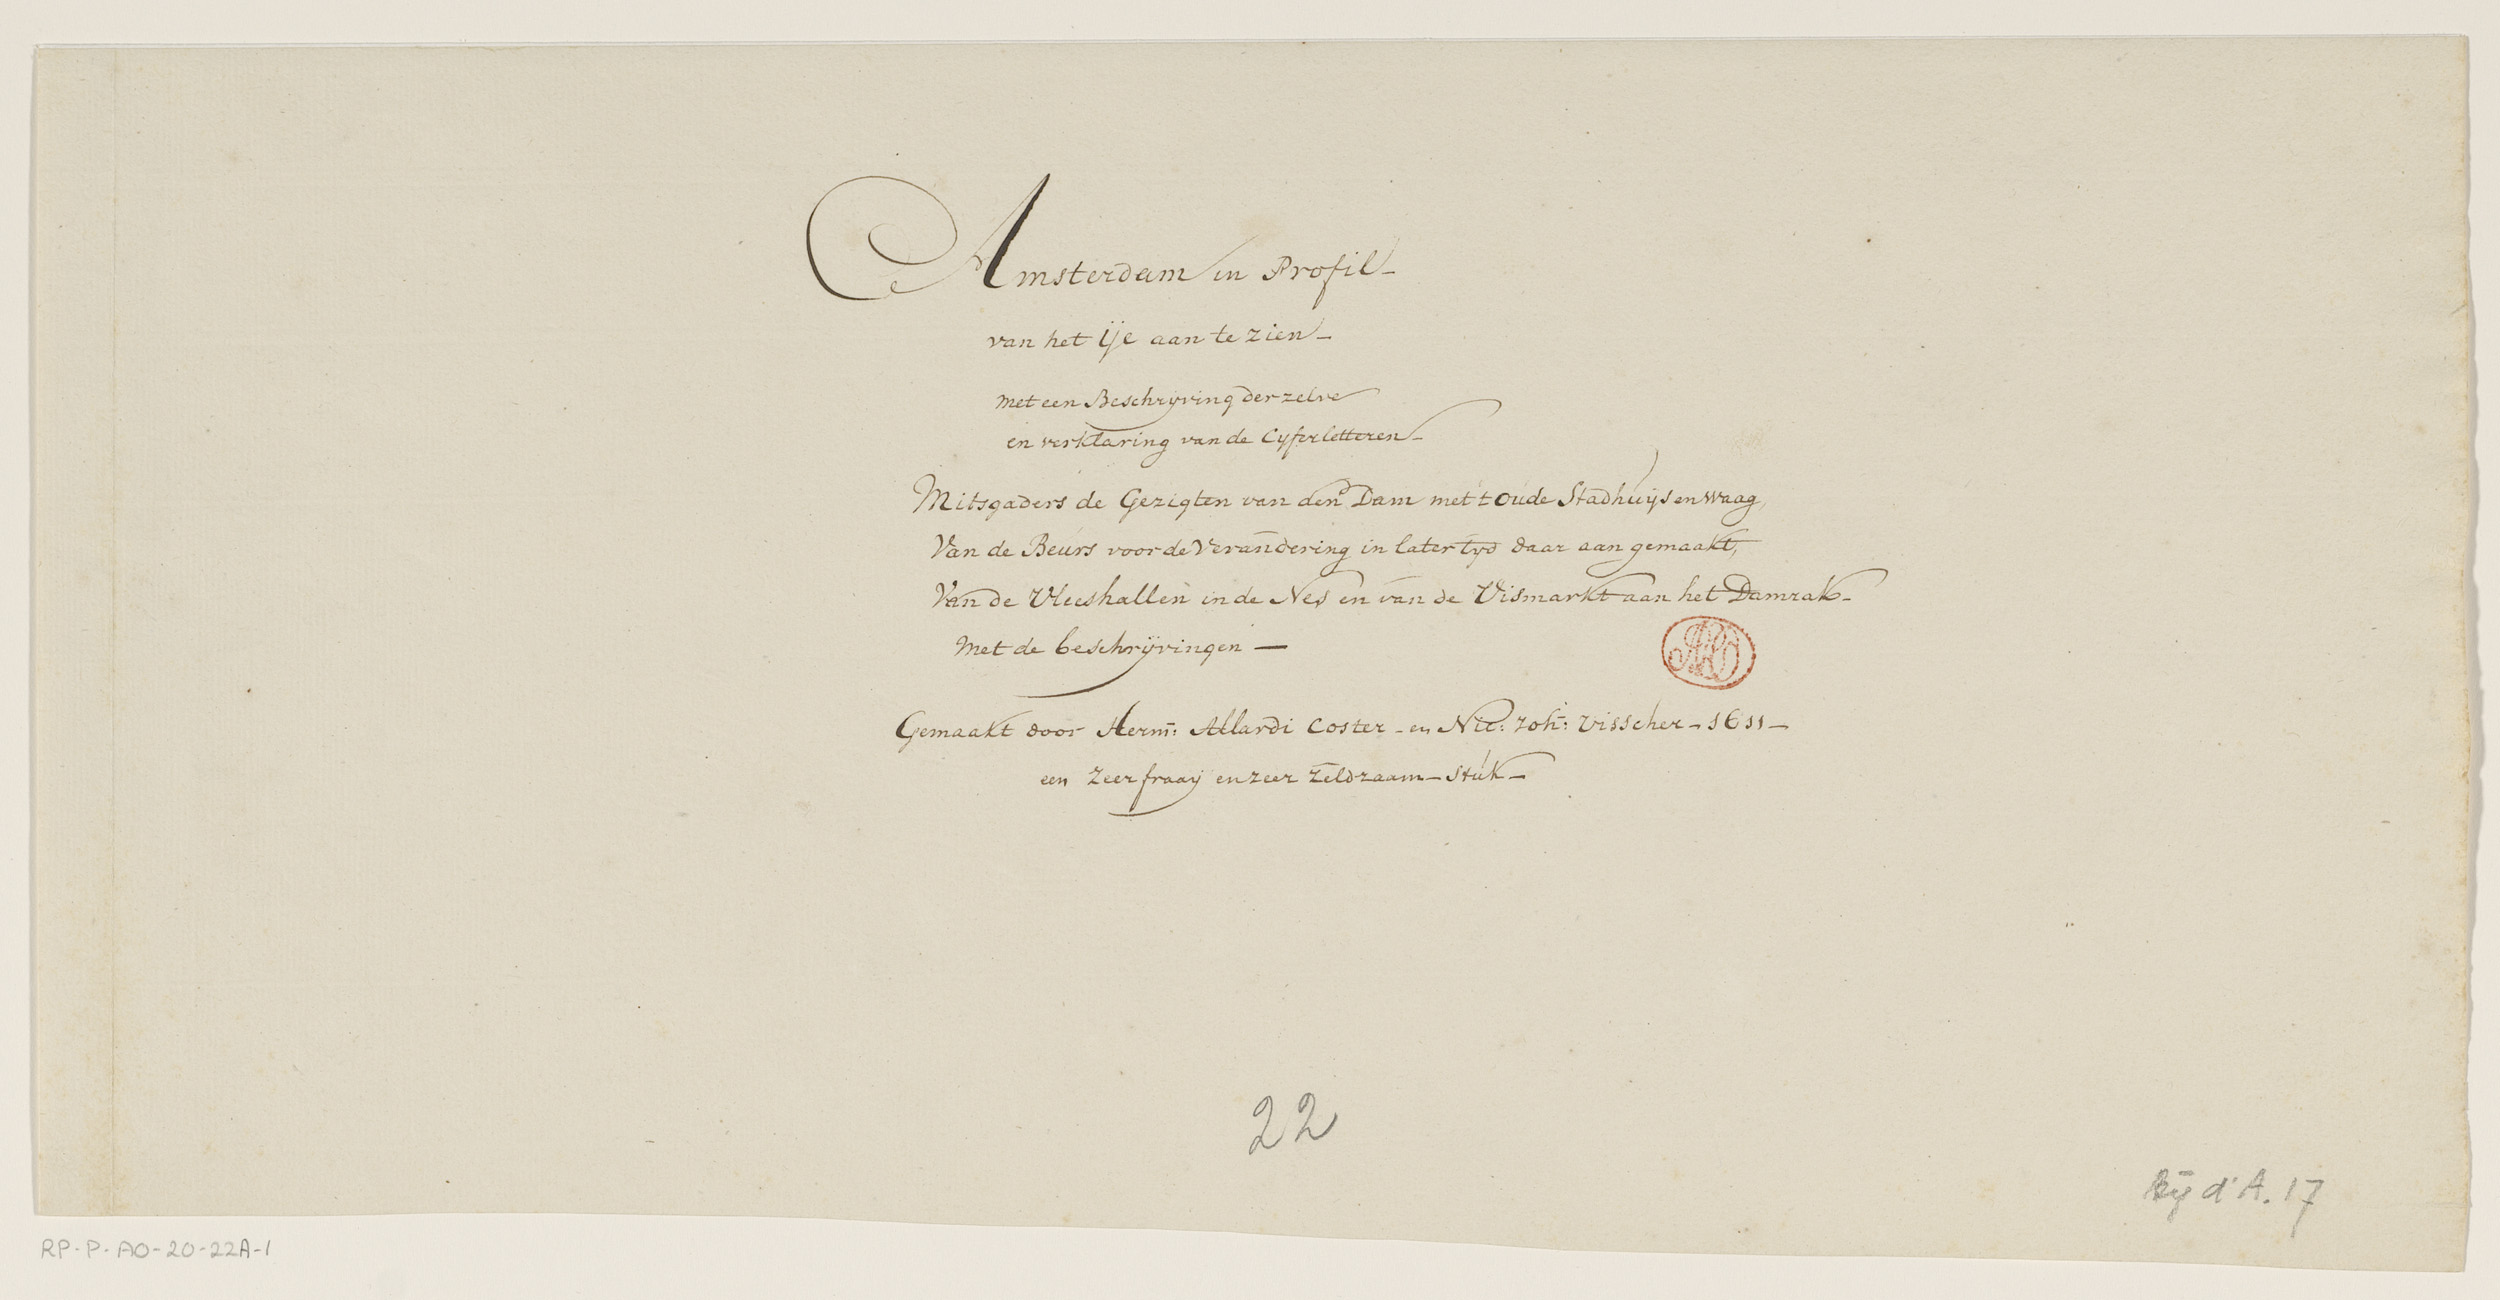 Amsterdam in Profil
van het ije aan te zien
met een Beschryving derzelve
en verklaring van de Cyferletteren
Mitsgaders de Gezigten van den Dam met 't oude Stadhuijs en Waag,
Van de Beurs voor de Verandering in later tyd daar aan gemaakt,
Van de Vleeshallen in de Nes en van de Vismarkt aan het Damrak
met de beschrijvingen
Gemaakt door Herm: Allardi Coster en Nic: Joh: Visscher 1611
een zeer fraaij en zeer zeldzaam stuk
22
bij d'A. 17
RP-P-AO-20-22A-1